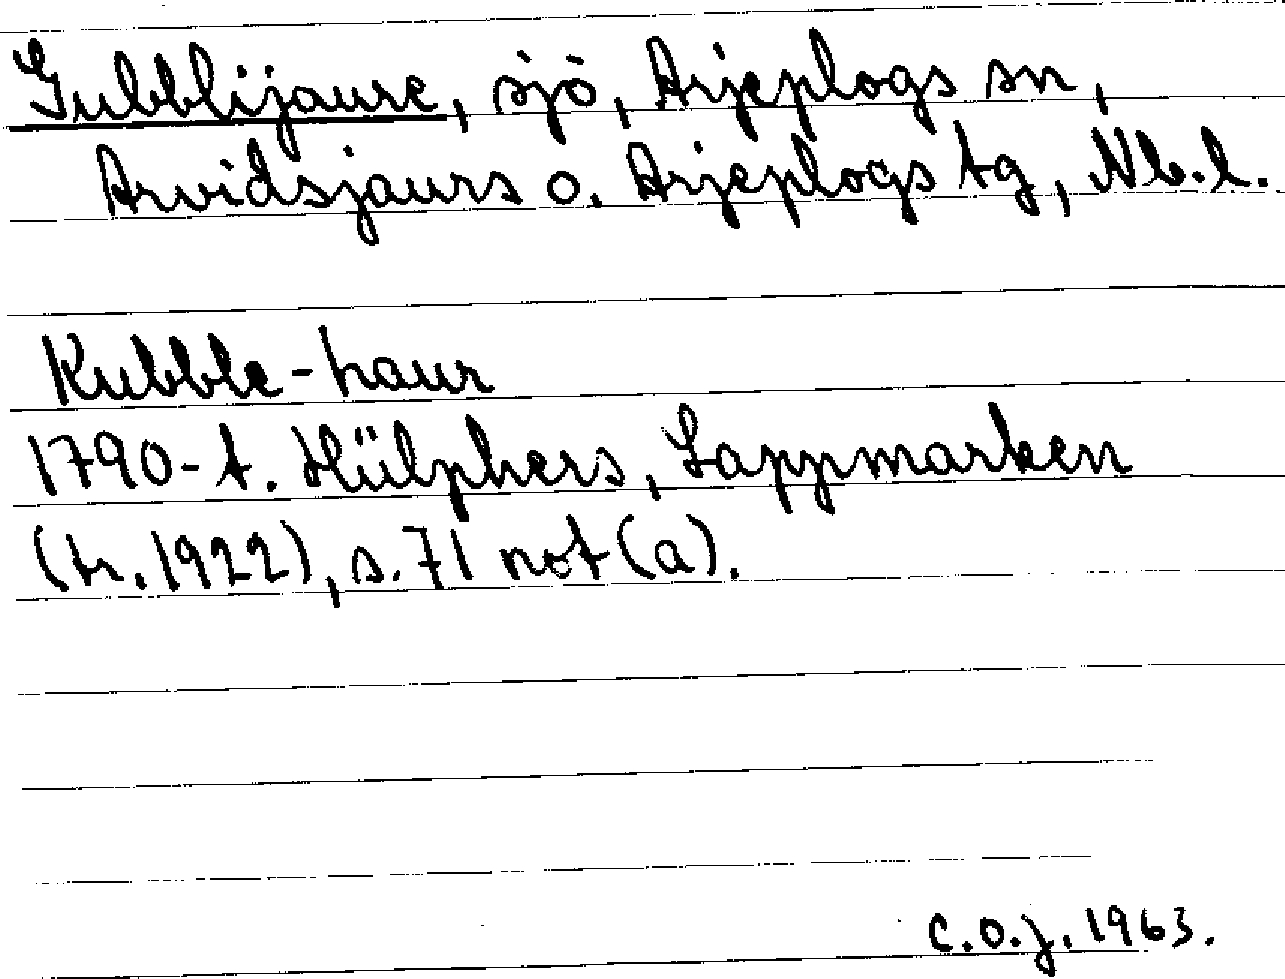 Gubblijaure, sjö, Arjeplogs sn,
Arvidsjaurs o. Arjeplogs tg, Nb.l.
Kubble-haur
1790-t. Hülphers, Lappmarken
(tr. 1922), s. 71 not (a).
C.O.J. 1963.